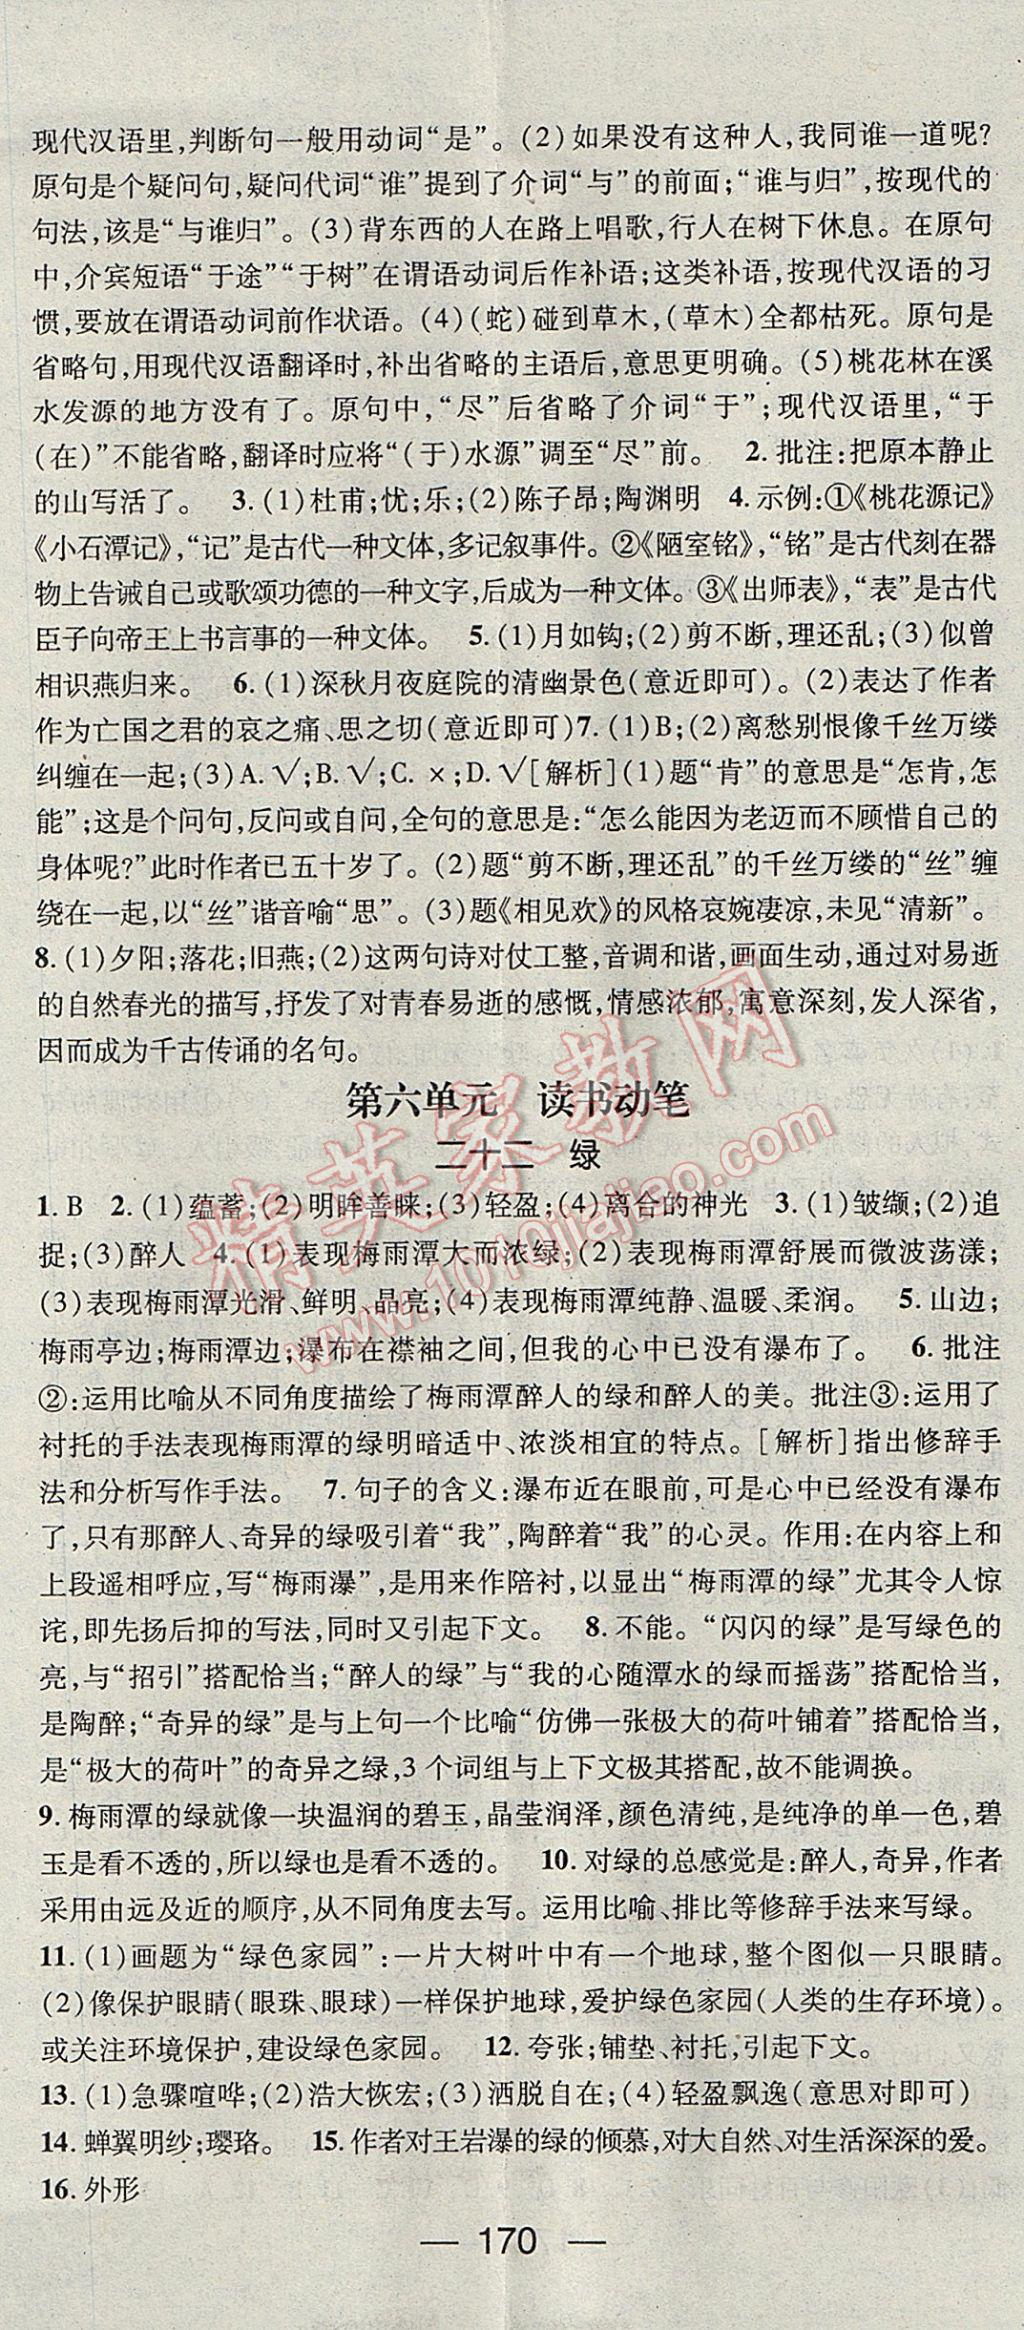 现代汉语里,判断句一般用动词“是”。(2)如果没有这种人,我同谁一道呢?
原句是个疑问句,疑问代词“谁”提到了介词“与”的前面;“谁与归”,按现代的
句法,该是“与谁归”。(3)背东西的人在路上唱歌,行人在树下休息。在原句
中,介宾短语“于途”“于树”在谓语动词后作补语;这类补语,按现代汉语的习
惯,要放在谓语动词前作状语。(4)(蛇)碰到草木,(草木)全都枯死。原句是
省略句,用现代汉语翻译时,补出省略的主语后,意思更明确。(5)桃花林在溪
水发源的地方没有了。原句中,“尽”后省略了介词“于”;现代汉语里,“于
(在)”不能省略,翻译时应将“(于)水源”调至“尽”前。 2. 批注:把原本静止
的山写活了。 3. (1)杜甫;忧;乐;(2)陈子昂;陶渊明 4. 示例:①《桃花源记》
《小石潭记》,“记”是古代一种文体,多记叙事件。②《陋室铭》,“铭”是古代刻在器
物上告诫自己或歌颂功德的一种文字,后成为一种文体。③《出师表》,“表”是古代
臣子向帝王上书言事的一种文体。 5. (1)月如钩;(2)剪不断,理还乱;(3)似曾
相识燕归来。 6. (1)深秋月夜庭院的清幽景色(意近即可)。(2)表达了作者
作为亡国之君的哀之痛、思之切(意近即可)7. (1)B;(2)离愁别恨像千丝万缕
纠缠在一起;(3)A. √;B. √;C. ×;D. √[解析](1)题“肯”的意思是“怎肯,怎
能”;这是个问句,反问或自问,全句的意思是:“怎么能因为老迈而不顾惜自己的
身体呢?”此时作者已五十岁了。(2)题“剪不断,理还乱”的千丝万缕的“丝”缠
绕在一起,以“丝”谐音喻“思”。(3)题《相见欢》的风格哀婉凄凉,未见“清新”。
8. (1)夕阳;落花;旧燕;(2)这两句诗对仗工整,音调和谐,画面生动,通过对易逝
的自然春光的描写,抒发了对青春易逝的感慨,情感浓郁,寓意深刻,发人深省,
因而成为千古传诵的名句。
第六单元 读书动笔
二十二 绿
1. B 2. (1)蕴蓄;(2)明眸善睐;(3)轻盈;(4)离合的神光 3. (1)皱缬;(2)追
捉;(3)醉人 4. (1)表现梅雨潭大而浓绿;(2)表现梅雨潭舒展而微波荡漾;
(3)表现梅雨潭光滑、鲜明、晶亮;(4)表现梅雨潭纯静、温暖、柔润。 5. 山边;
梅雨亭边;梅雨潭边;瀑布在襟袖之间,但我的心中已没有瀑布了。 6. 批注
②:运用比喻从不同角度描绘了梅雨潭醉人的绿和醉人的美。批注③:运用了
衬托的手法表现梅雨潭的绿明暗适中、浓淡相宜的特点。[解析]指出修辞手
法和分析写作手法。 7. 句子的含义:瀑布近在眼前,可是心中已经没有瀑布
了,只有那醉人、奇异的绿吸引着“我”,陶醉着“我”的心灵。作用:在内容上和
上段遥相呼应,写“梅雨瀑”,是用来作陪衬,以显出“梅雨潭的绿”尤其令人惊
诧,即先扬后抑的写法,同时又引起下文。 8. 不能。“闪闪的绿”是写绿色的
亮,与“招引”搭配恰当;“醉人的绿”与“我的心随潭水的绿而摇荡”搭配恰当,
是陶醉;“奇异的绿”是与上句一个比喻“仿佛一张极大的荷叶铺着”搭配恰当,
是“极大的荷叶”的奇异之绿,3 个词组与上下文极其搭配,故不能调换。
9. 梅雨潭的绿就像一块温润的碧玉,晶莹润泽,颜色清纯,是纯净的单一色,碧
玉是看不透的,所以绿也是看不透的。 10. 对绿的总感觉是:醉人,奇异,作者
采用由远及近的顺序,从不同角度去写。运用比喻、排比等修辞手法来写绿。
11. (1)画题为“绿色家园”:一片大树叶中有一个地球,整个图似一只眼睛。
(2)像保护眼睛(眼珠、眼球)一样保护地球,爱护绿色家园(人类的生存环境)。
或关注环境保护,建设绿色家园。 12. 夸张;铺垫、衬托,引起下文。
13. (1)急骤喧哗;(2)浩大恢宏;(3)洒脱自在;(4)轻盈飘逸(意思对即可)
14. 蝉翼明纱;璎珞。 15. 作者对王岩瀑的绿的倾慕,对大自然、对生活深深的爱。
16. 外形
— 170 —
精英家教网
www.1010jiajiao.com